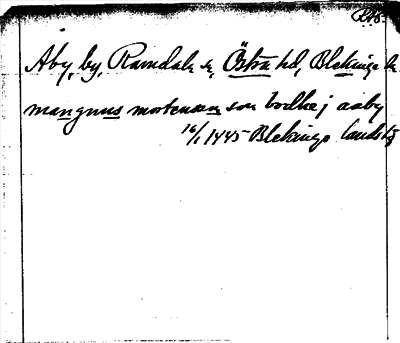 Åby, by, Ramdala sn, Östra hd, Blekinge l.
mangnus mortensson som bodhe j aaby
16/1 1445 Blekinge landstg